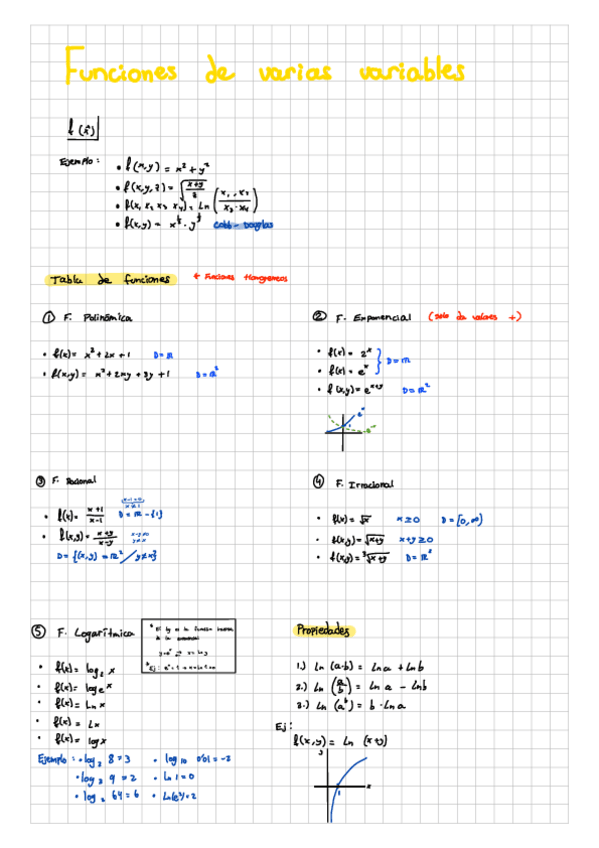 Funciones de varias variables
f(x̄)
Ejemplo: • f(x,y) = x² + y²
• f(x,y,z) = √((x+y)/z)
• f(x₁ x₂ x₃ x₄) = Ln ((x₁ · x₂)/(x₃ · x₄))
Cobb-Douglas
Tabla de funciones
① F. Polinómica
• f(x) = x² + 2x + 1 D = ℝ
D = ℝ²
② F. Exponencial (solo da valores +)
• f(x) = 2ˣ
• f(x) = eˣ
D = ℝ
• f(x,y) = eˣ⁺ʸ D = ℝ²
③ F. Racional
• f(x) = (x+1)/(x-1) D = ℝ - {1}
• f(x,y) = (x+y)/(x-y)
D = {(x,y) = ℝ² / y≠x}
④ F. Irracional
• f(x) = √x x ≥ 0 D = [0, ∞)
• f(x,y) = √(x+y) x+y ≥ 0
• f(x,y) = ³√(x+y) D = ℝ²
⑤ F. Logarítmica
• f(x) = log₂ x
• f(x) = log e ˣ
• f(x) = Ln x
• f(x) = Lx
• f(x) = log x
Ejemplo: • log₂ 8 = 3
• log₃ 9 = 2
• log₂ 64 = 6
• log₁₀ 0'01 = -2
• Ln 1 = 0
• Ln(e²) = 2
Propiedades
1.) Ln (a·b) = Ln a + Ln b
2.) Ln (a/b) = Ln a - Ln b
3.) Ln (aᵇ) = b · Ln a
Ej:
f(x,y) = Ln (x+y)
y
x
1